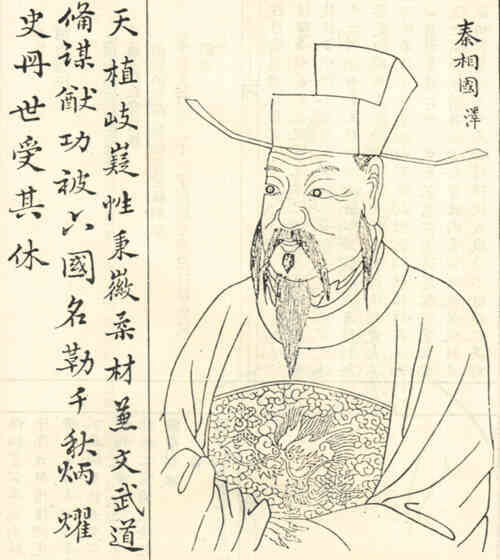 秦相國 澤
天植岐嶷性秉徽柔材兼文武道
偹謀猷功被六國名勒千秋炳耀
史册世受其休